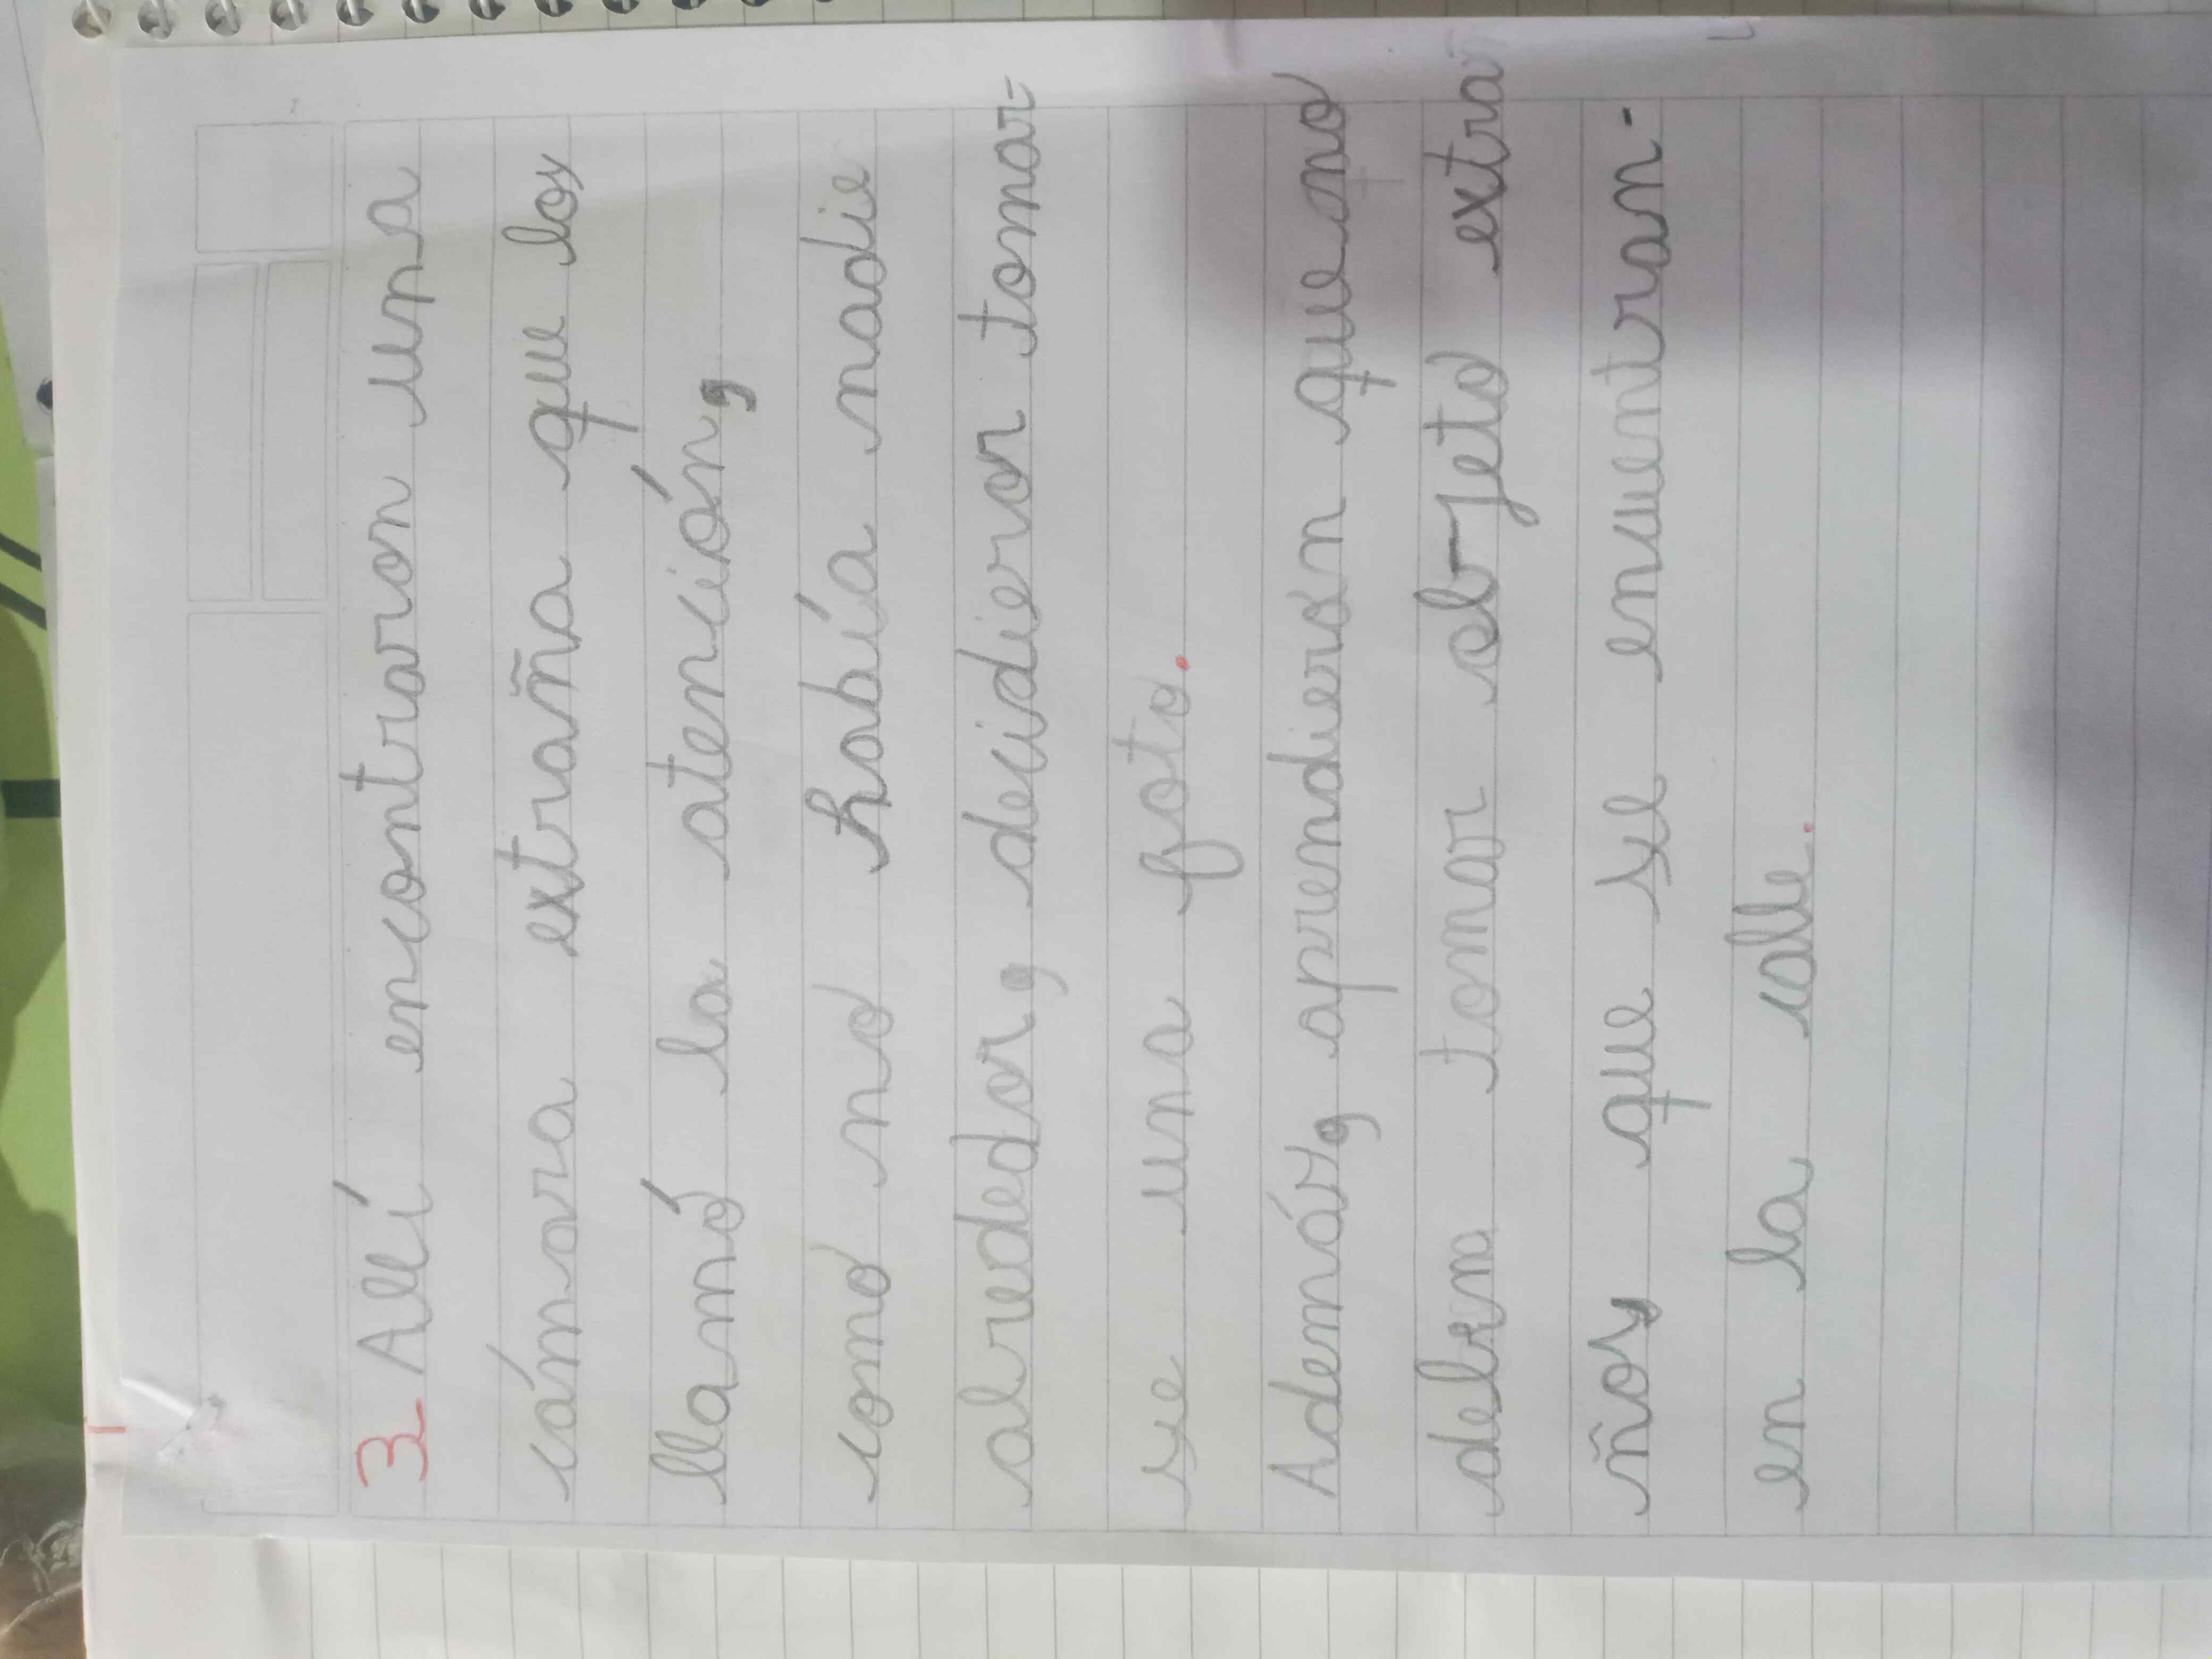 3 Allí encontraron una
cámara extraña que los
llamó la atención,
como no había nadie
alrededor, decidieron tomar-
se una foto.
Además, aprendieron que no
deben tomar objeto extra
ños que se encuentran-
en la calle.